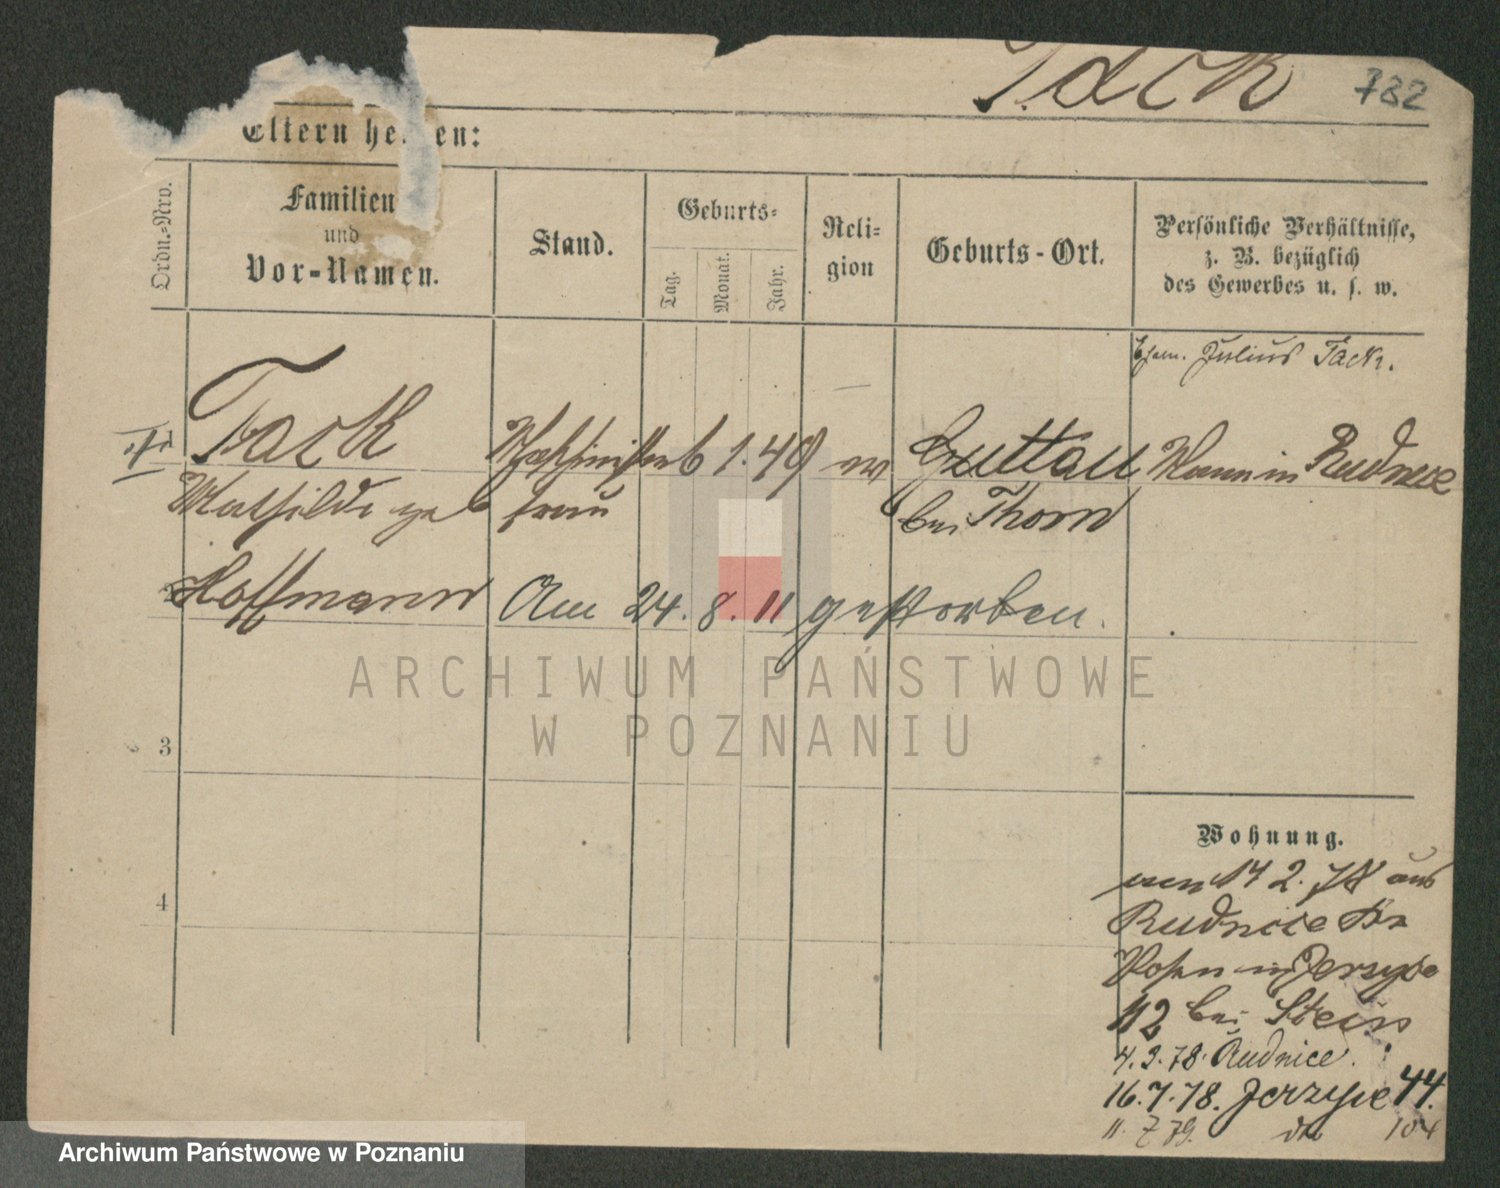 Tack 732
Eltern he en:
Ordn.-Nro.
Familien
und
Vor-Namen.
Stand.
Geburts-
Tag.
Monat.
Jahr.
Reli-
gion
Geburts-Ort.
Persönliche Verhältnisse,
z. B. bezüglich
des Gewerbes u. s. w.
Julius Tack.
Tack 6 1. 49 ev Guttau Mann in Rudnice
Mathilde geb frau bei Thorn
Hoffmann Am 24. 8. 11 gestorben.
ARCHIWUM PAŃSTWOWE
W POZNANIU
3
4
Wohnung.
14 2. 78 aus
Rudnice Kr
Posen in Jerzyce
112 bei
4. 3. 78. Rudnice.
16. 7. 78. Jerzyce 44.
11. 7 79. do 104
Archiwum Państwowe w Poznaniu